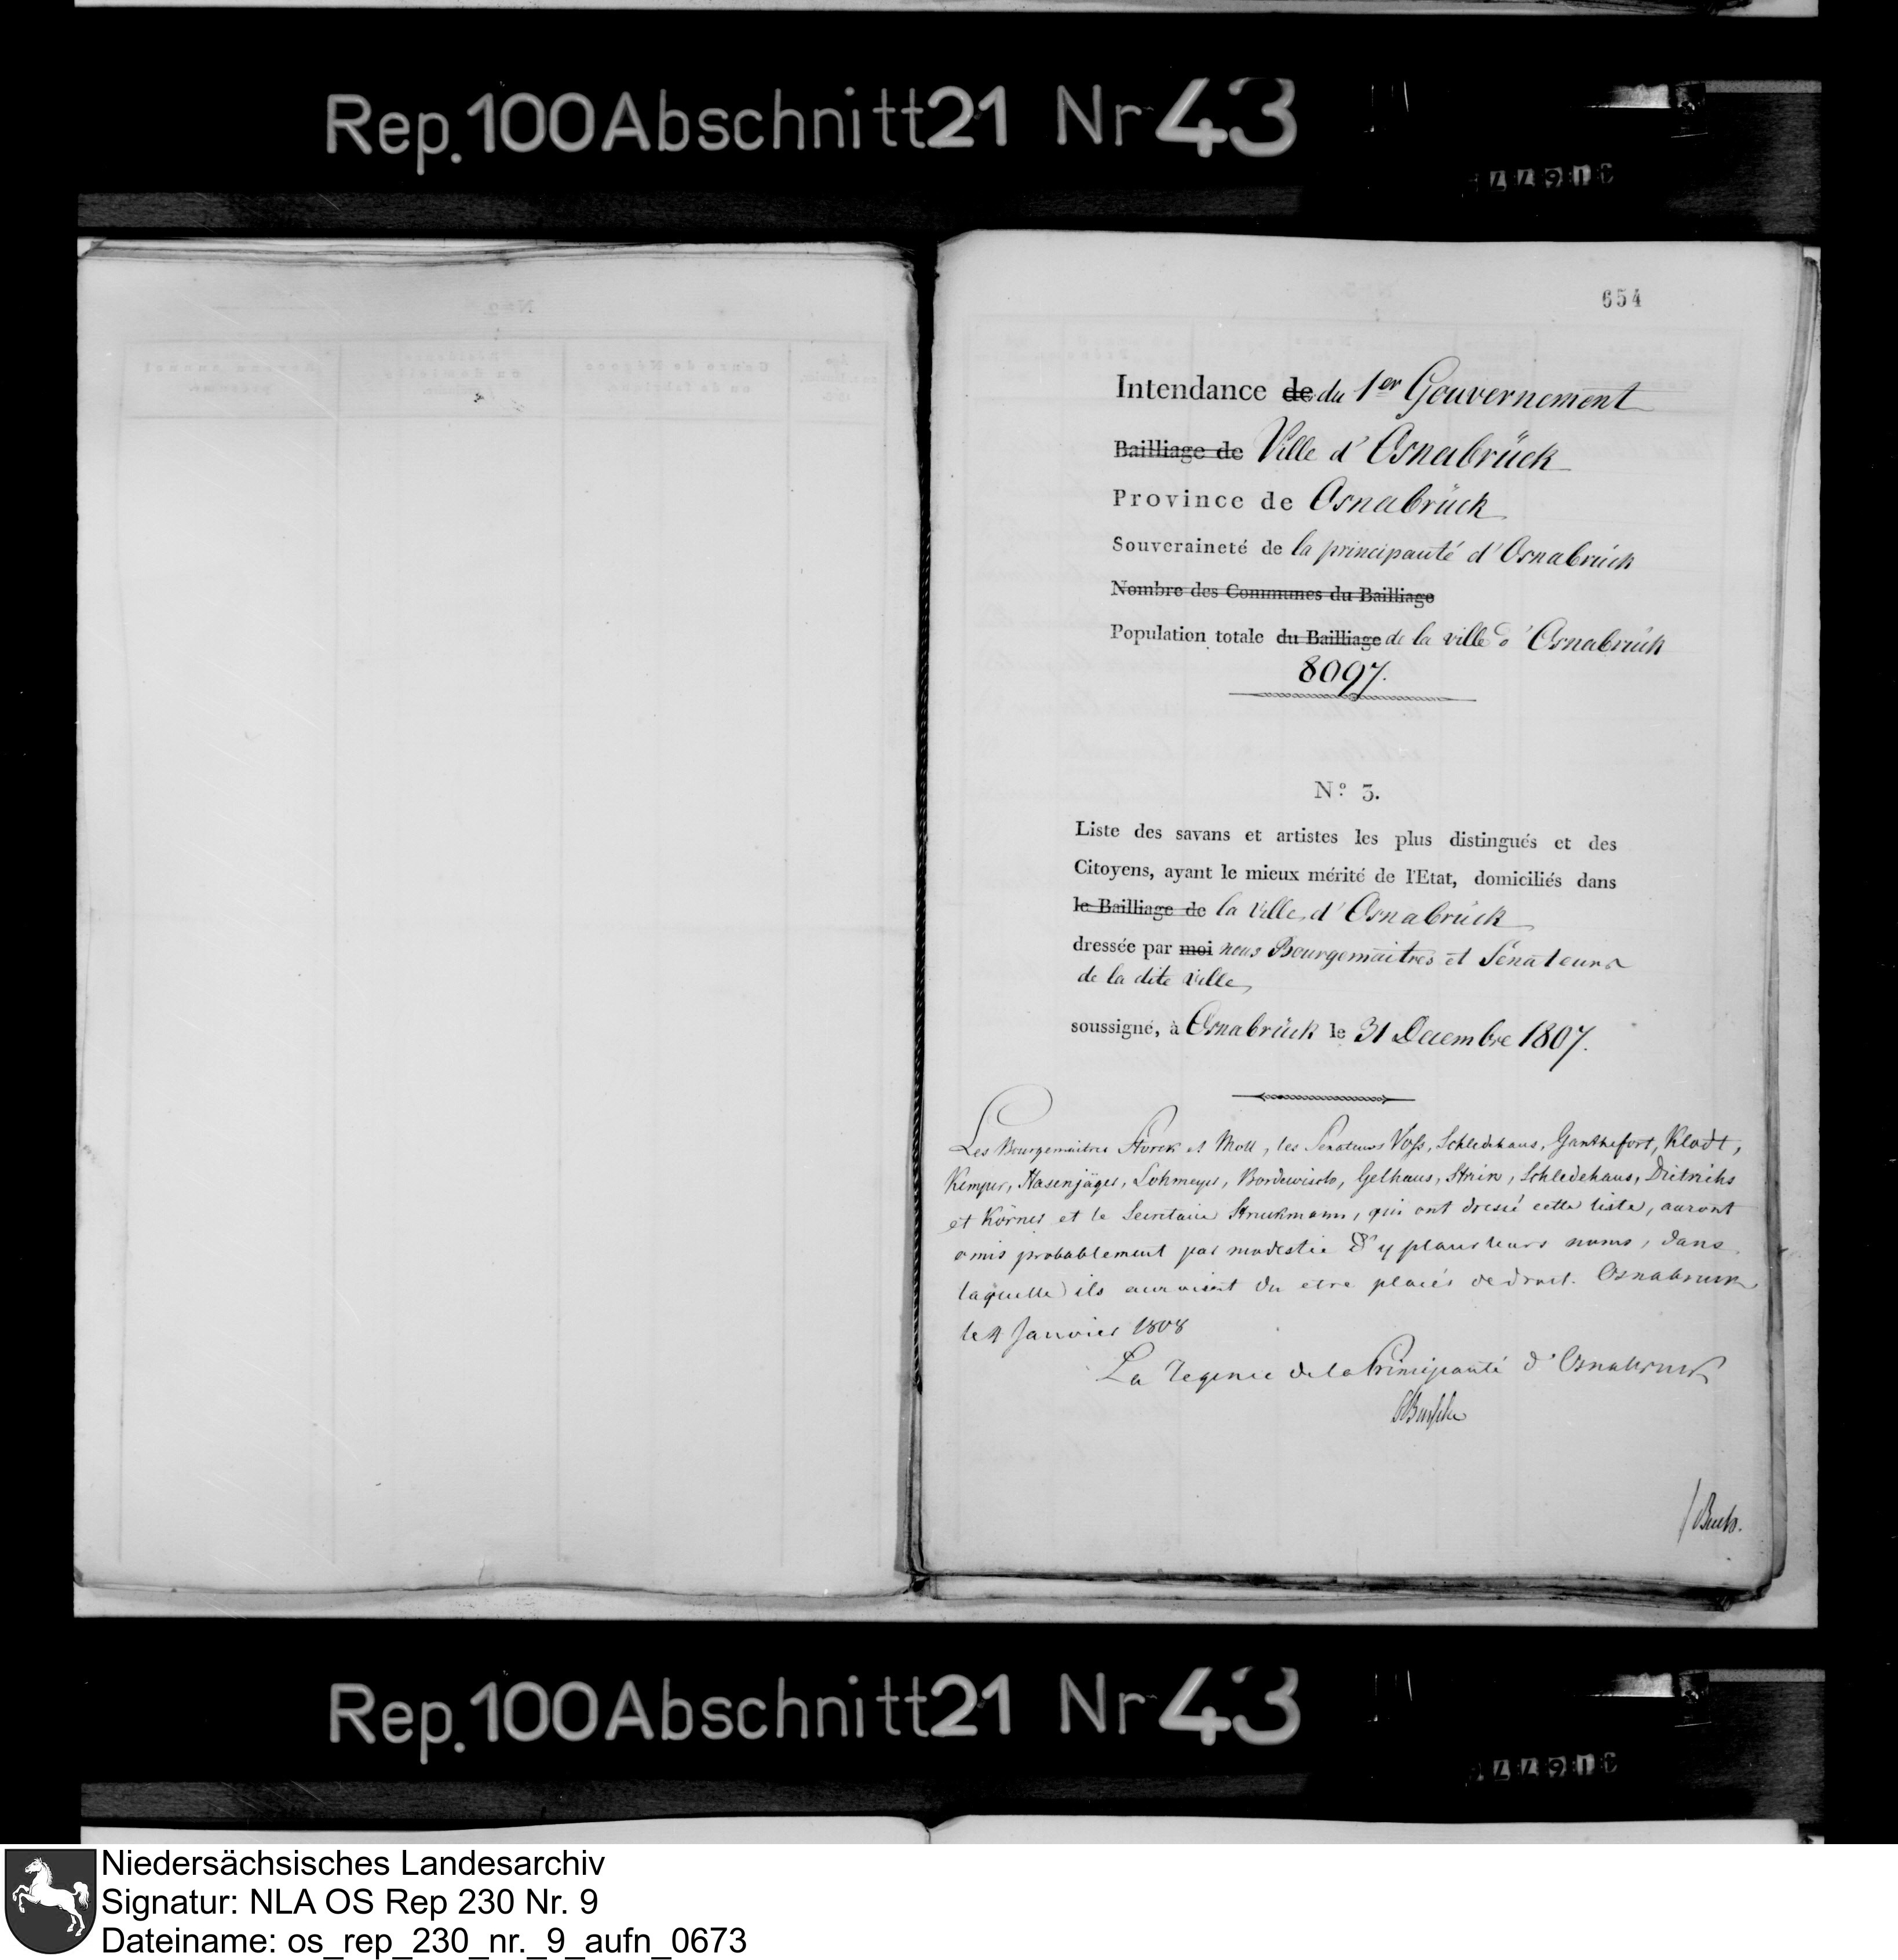 Rep. 100 Abschnitt 21 Nr 43
654
Intendance de du 1er Gouvernement
Bailliage de Ville d'Osnabrück
Province de Osnabrück
Souveraineté de la principauté d'Osnabrück
Nombre des Communes du Bailliage
Population totale du Bailliage de la ville d'Osnabrück
8097.
Nº 3.
Liste des savans et artistes les plus distingués et des
Citoyens, ayant le mieux mérité de l'Etat, domiciliés dans
le Bailliage de la Ville, d'Osnabrück
dressée par moi nous Bourgemaitres et Senateurs
de la dite Ville,
soussigné, à Osnabrück le 31 Decembre 1807.
Les Bourgemaitres Storck et Moll, les Senateurs Voss, Schledehaus, Ganthefort, Klodt,
Kemper, Hasenjäger, Lohmeyer, Bordewisch, Gelhaus, Schledehaus, Dietrichs
et Körner et le Secretaire Struckmann, qui ont dressé cette liste, auront
omis probablement par modestie d'y leurs noms, dans
laquelle ils auroient du etre placés de droit. Osnabruck
le Janvier 1808
La Regence de la Principauté d'Osnabruck
Rep. 100 Abschnitt 21 Nr 43
Niedersächsisches Landesarchiv
Signatur: NLA OS Rep 230 Nr. 9
Dateiname: os_rep_230_nr._9_aufn_0673